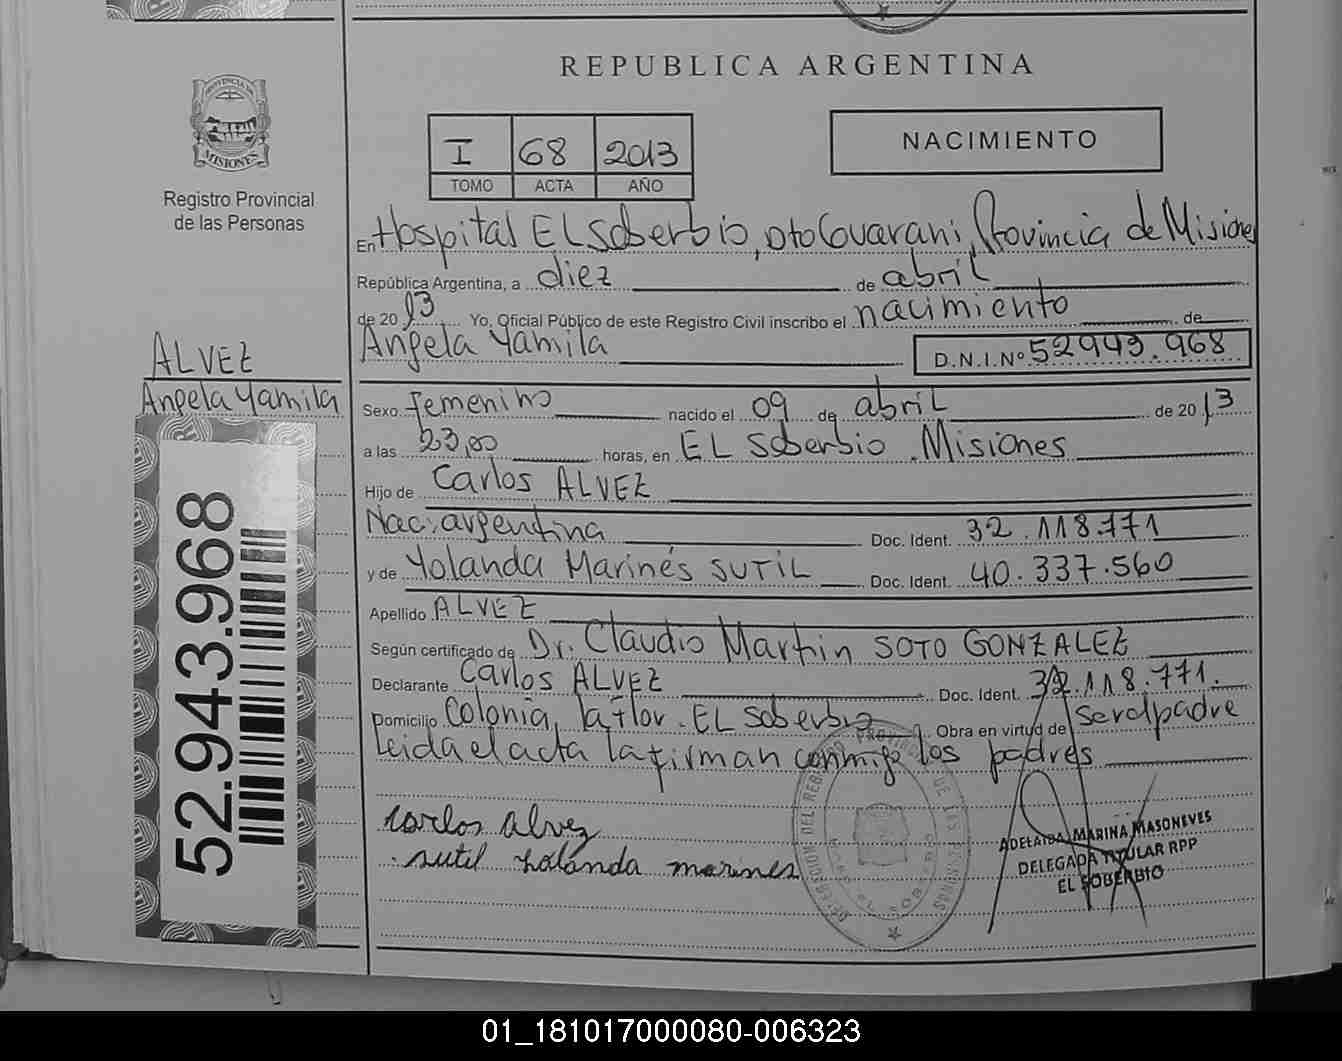 REPUBLICA ARGENTINA
PROVINCIA DE
MISIONES
Registro Provincial
de las Personas
I 68 2013
TOMO ACTA AÑO
NACIMIENTO
En Hospital El Soberbio, Dto Guarani, Provincia de Misiones
República Argentina, a diez de abril
de 20 13 Yo, Oficial Público de este Registro Civil inscribo el nacimiento de
Angela Yamila D.N.I.Nº 52943.968
ALVEZ
Angela Yamila
Sexo femenino nacido el 09 de abril de 20 13
a las 23,00 horas, en EL Soberbio, Misiones
Hijo de Carlos ALVEZ
Nac: argentina Doc. Ident. 32.118.771
y de Yolanda Marinés SUTIL Doc. Ident. 40.337.560
Apellido ALVEZ
Según certificado de Dr. Claudio Martin SOTO GONZALEZ
Declarante Carlos ALVEZ Doc. Ident. 32.118.771.
Domicilio Colonia, la flor. EL Soberbio Obra en virtud de ser el padre
Leida el acta la firman conmigo los padres
carlos alvez
sutil yolanda marines
ADELAIDA MARINA MASONEVES
DELEGADA TITULAR RPP
EL SOBERBIO
52.943.968
01_181017000080-006323